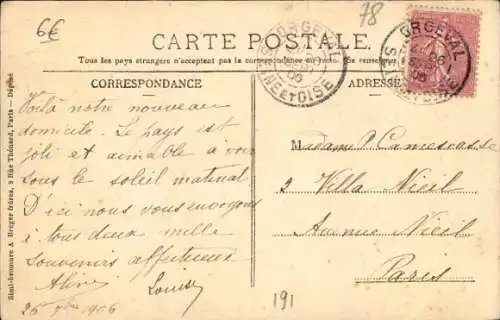 6€
78
CARTE POSTALE
Tous les pays étrangers n'acceptent pas la correspondance au recto.
CORRESPONDANCE
ADRESSE
ORGEVAL
SEINE ET OISE
ORGEVAL
Voilà notre nouveau
domicile. Le pays est
joli et aimable à voir
sous le soleil matinal
D'ici nous vous envoyons
à tous deux mille
souvenirs affectueux
Aline Louise
26 7bre 1906
Madame P. Camescasse
2 Villa Niel
Avenue Niel
Paris
191
Simi-bromure A. Breger frères, 9 Rue Thénard, Paris — Déposé